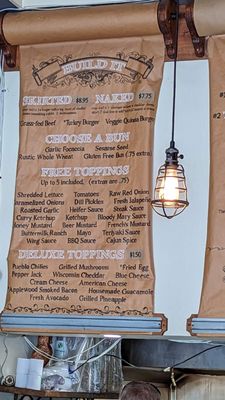 BUILD IT
SKIRTED $8.95 NAKED $7.75
Grass-fed Beef *Turkey Burger Veggie Quinoa Burger
CHOOSE A BUN
Garlic Focaccia Sesame Seed
Rustic Whole Wheat Gluten Free Bun (.75 extra)
FREE TOPPINGS
Up to 5 included, (extras are .75)
Shredded Lettuce Tomatoes Raw Red Onion
Caramelized Onions Dill Pickles Fresh Jalapeño
Roasted Garlic Heifer Sauce Steak Sauce
Curry Ketchup Ketchup Bloody Mary Sauce
Honey Mustard Beer Mustard French's Mustard
Buttermilk Ranch Mayo Teriyaki Sauce
Wing Sauce BBQ Sauce Cajun Spice
DELUXE TOPPINGS $1.50
Pueblo Chilies Grilled Mushrooms *Fried Egg
Pepper Jack Wisconsin Cheddar Blue Cheese
Cream Cheese American Cheese
Applewood Smoked Bacon Homemade Guacamole
Fresh Avocado Grilled Pineapple